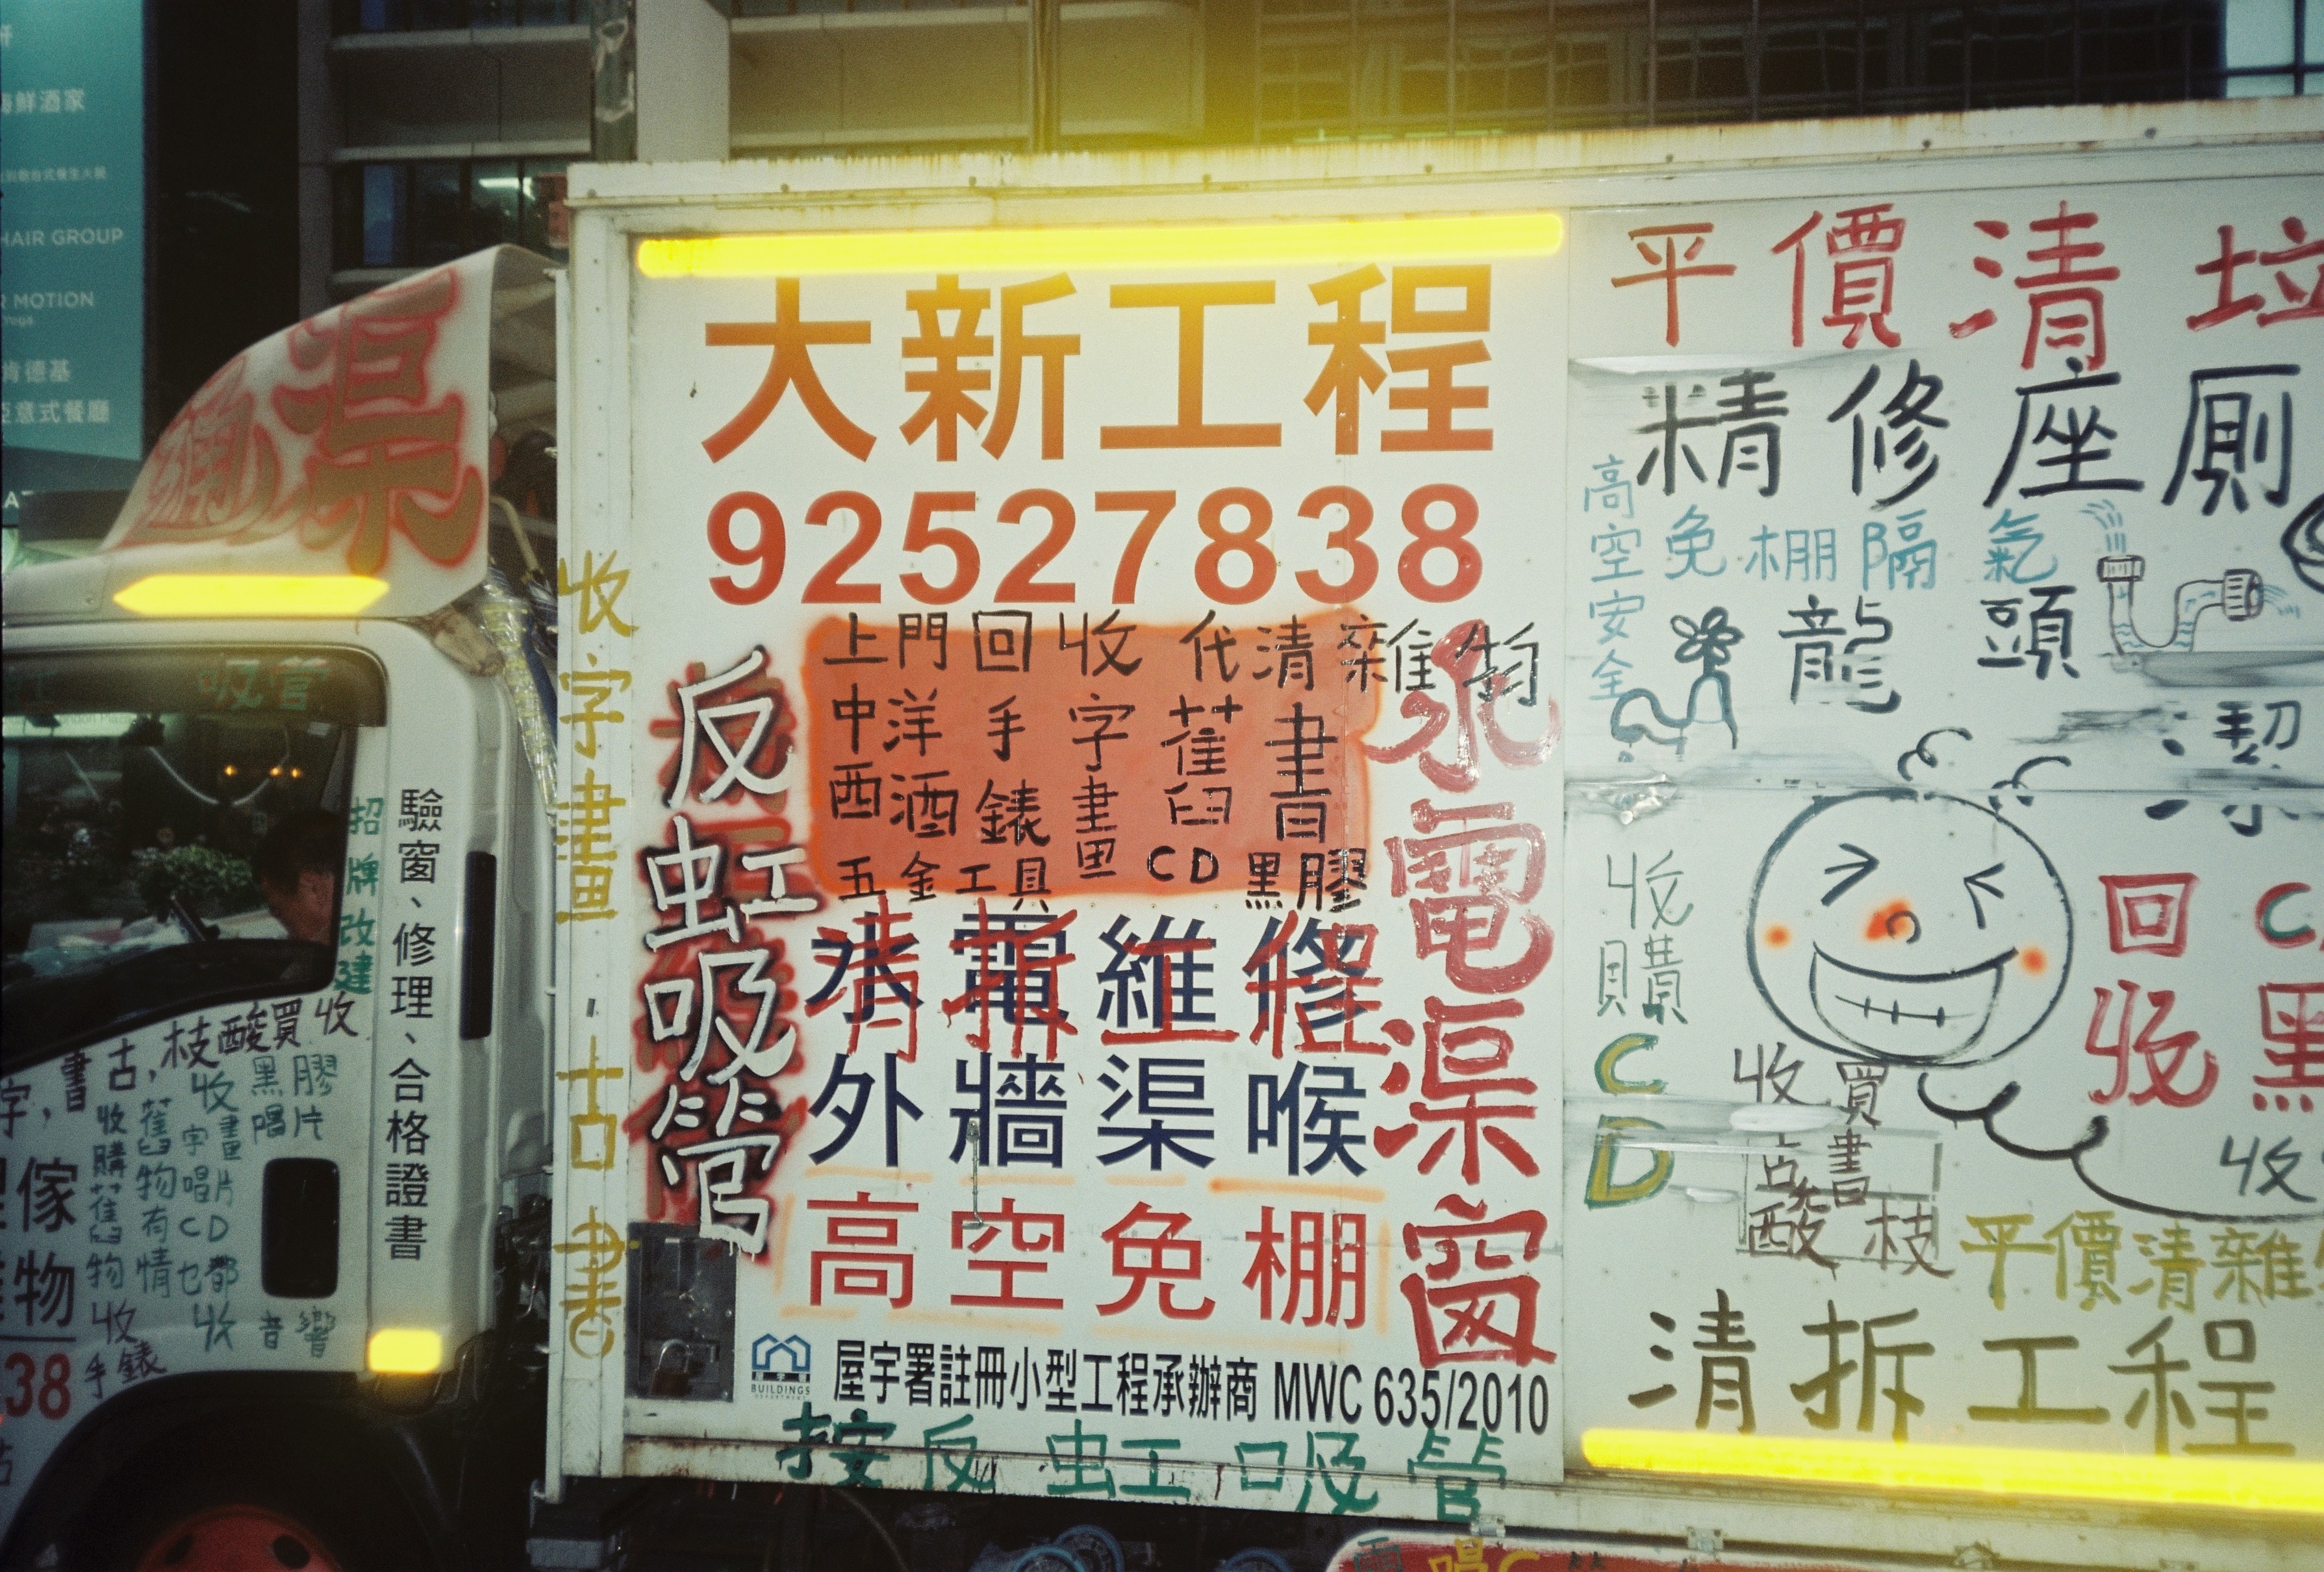 海鮮酒家
HAIR GROUP
MOTION
肯德基
意式餐廳
通渠
吸管
招牌改建
驗窗、修理、合格證書
收買酸枝,古書,字
收黑膠唱片
收字畫唱片CD也都收
收購舊物
舊物有情
收手錶
音響
傢
物
38
收字畫.古書
大新工程
92527838
上門回收 代清雜物
中洋手字舊書
西酒錶畫臼百
五金工具 CD 黑膠
反虹吸管
水電渠窗
水電維修
清拆
外牆渠喉
高空免棚
BUILDINGS
屋宇署註冊小型工程承辦商 MWC 635/2010
按反虹吸管
平價清垃
精修座厠
高空安全
免棚隔氣
龍頭
潔
收購CD
回收
黑
收買古書酸枝
收
平價清雜
清拆工程